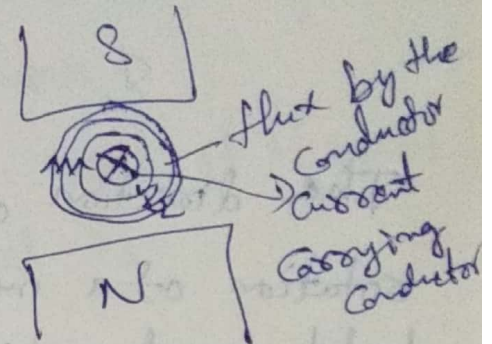 S
flux by the
conductor
current
carrying
conductor
N